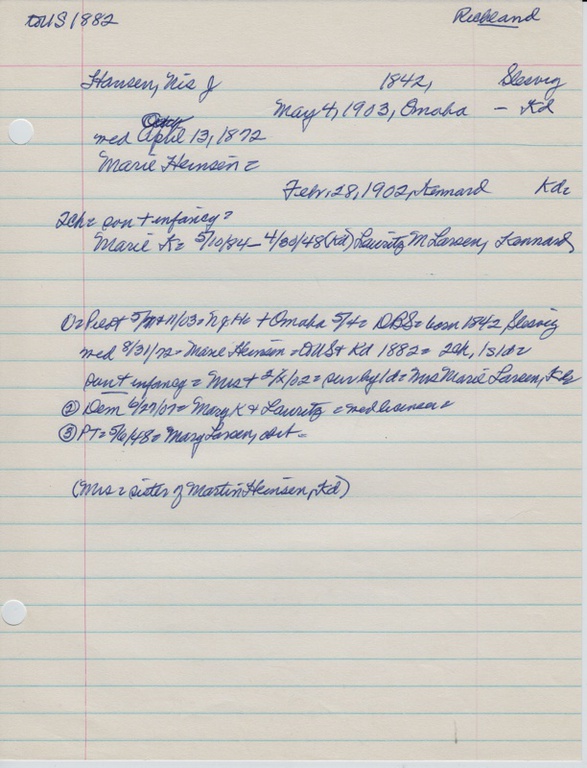 to US 1882 Richland
Hansen, Nis J 1842, Slesvig
May 4, 1903, Omaha – Kd
med April 13, 1872
Marie Heinsen =
Febr. 28, 1902, Kennard Kd=
2ch = son + infancy =
Marie K = 5/10/84 – 4/30/48 (Kd) Lauritz M Larsen, Kennard,
① = Pilot 5/ 11/03 = N J H = + Omaha 5/4 = DBS = born 1842 Slesvig
med 8/31/72 = Marie Heinsen = to US + Kd 1882 = 2ch, 1s1d =
son + infancy = Mrs + 2/ /02 = sur by 1d = Mrs Marie Larsen, Kd=
② Dem 6/27/07 = Mary K + Lauritz = med license =
③ PT = 5/6/48 = Mary Larsen, obit =
(Mrs = sister of Martin Heinsen, Kd)